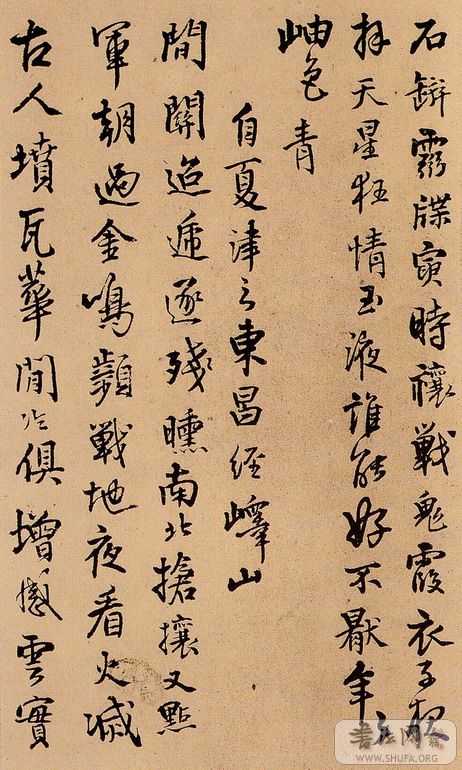 石牒寅時禳戰鬼霞衣子夜
拜天星狂情玉液誰能好不厭年
岫色青
自夏津之東昌經嶧山
間關迢遞逐殘曛南北搶攘又點
軍朝過金鳴戰地夜看火滅
古人墳瓦華閒冷俱增憾雲實
书法网
WWW.SHUFA.ORG